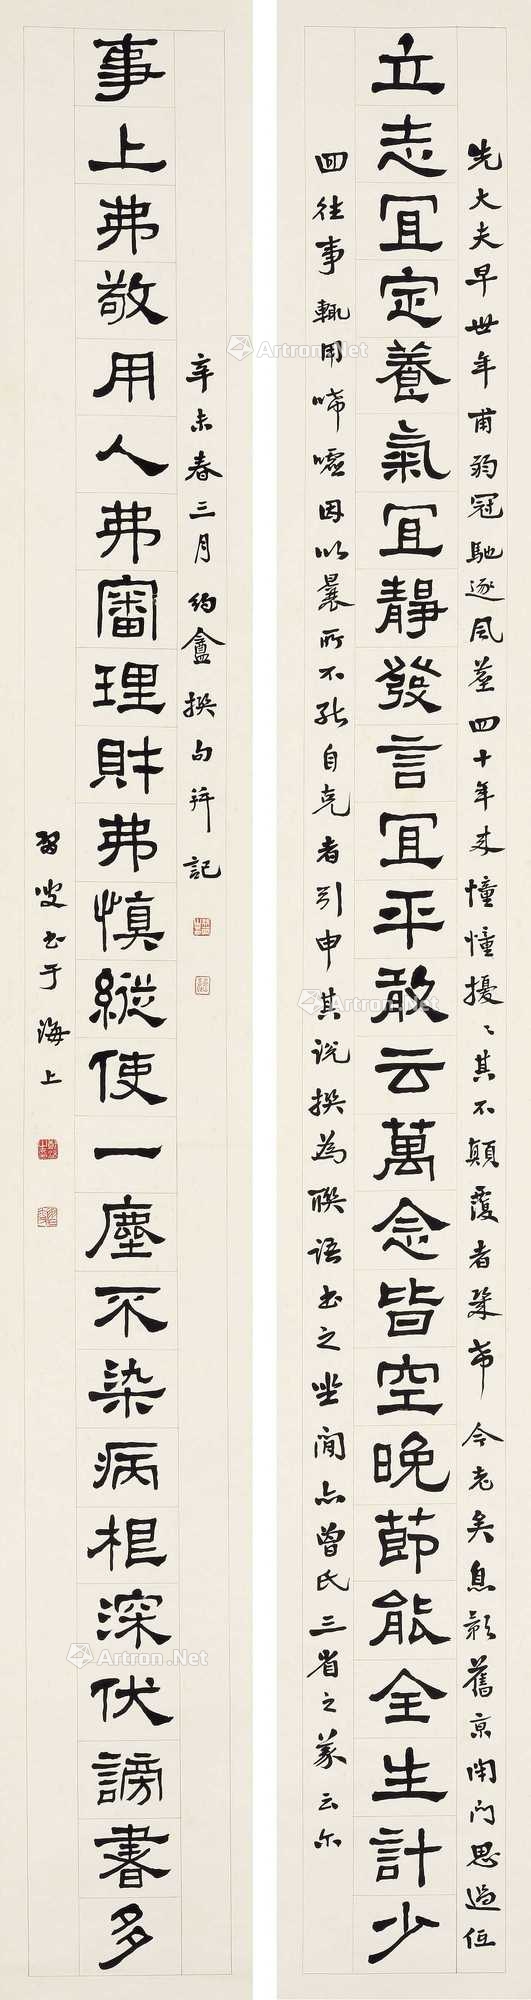 先大夫早世年甫弱冠馳逐風塵四十年来憧憧擾〻其不顛覆者幾希今老矣息影舊京閉門思過每
立志宜定養氣宜靜發言宜平敢云萬念皆空晚節能全生計少
回往事輒用唏噓因以曩所不能自克者引申其説撰為聯語書之坐間亦曾氏三省之義云尔
辛未春三月約盦撰句并記
事上弗敬用人弗審理財弗慎縱使一塵不染病根深伏謗書多
叟書于海上
Artron.Net
Artron.Net
Artron.Net
Artron.Net
Artron.Net
Artron.Net